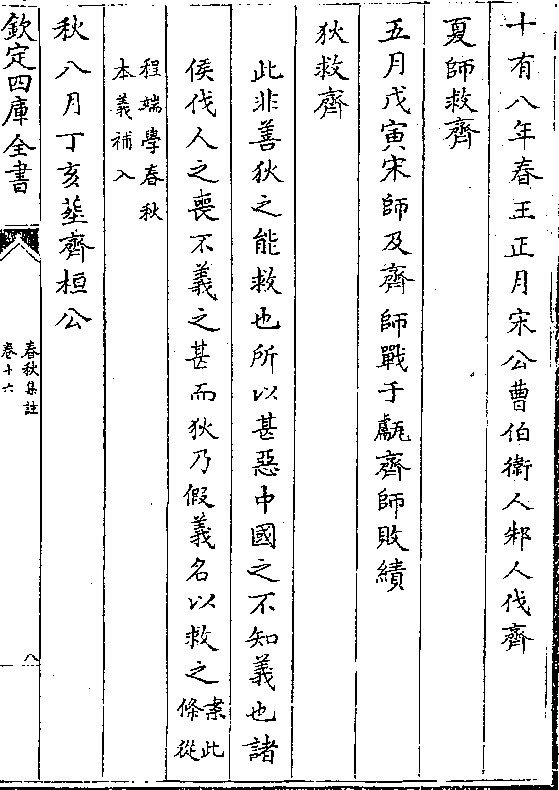 十有八年春王正月宋公曹伯衛人邾人伐齊
夏師救齊
五月戊寅宋師及齊師戰于甗齊師敗績
狄救齊
此非善狄之能救也所以甚惡中國之不知義也諸
侯伐人之喪不義之甚而狄乃假義名以救之案此
條從
程端學春秋
本義補入
秋八月丁亥塟齊桓公
欽定四庫全書
春秋集註
卷十六
八